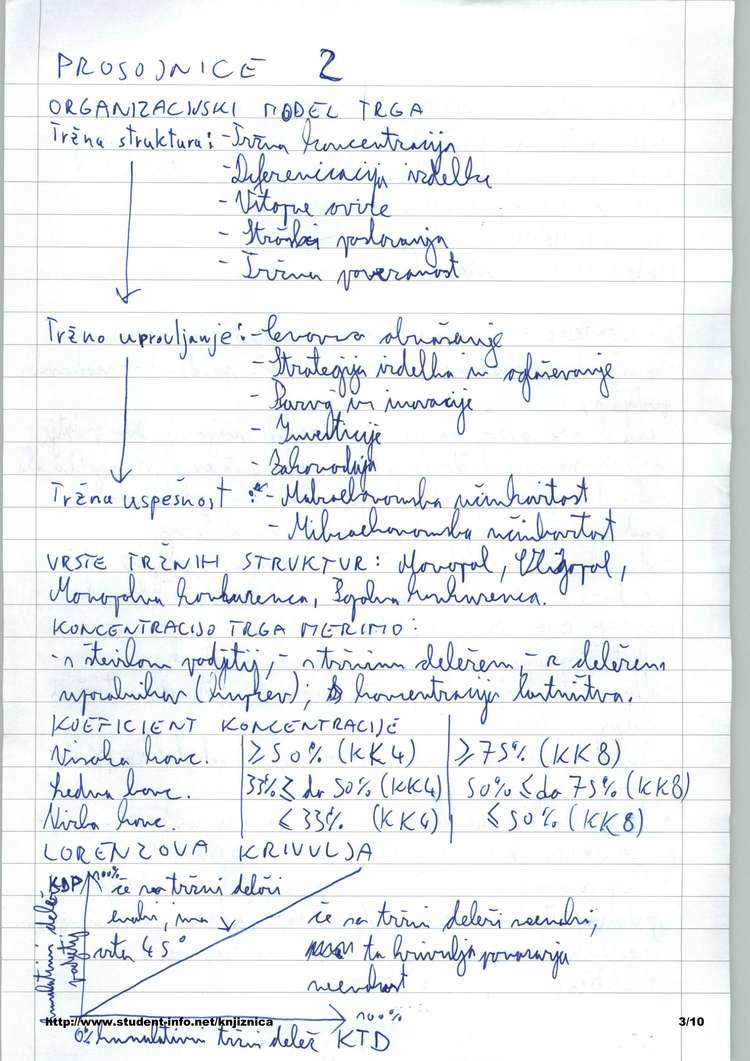 PROSOJNICE 2
ORGANIZACIJSKI MODEL TRGA
Tržna struktura: - Tržna koncentracija
- Diferenciacija izdelka
- Vstopne ovire
- Stroški poslovanja
- Tržna povezanost
Tržno upravljanje: - Cenovno obnašanje
- Strategija izdelka in oglaševanje
- Razvoj in inovacije
- Investicije
- Zakonodaja
Tržna uspešnost: - Makroekonomska učinkovitost
- Mikroekonomska učinkovitost
VRSTE TRŽNIH STRUKTUR: Monopol, Oligopol,
Monopolna konkurenca, Popolna konkurenca.
KONCENTRACIJO TRGA MERIMO:
- s številom podjetij, - s tržnim deležem, - z deležem
uporabnikov (kupcev), koncentracija lastništva.
KOEFICIENT KONCENTRACIJE
Visoka konc. ≥50% (KK4) ≥75% (KK8)
Srednja konc. 33% ≤ do 50% (KK4) 50% ≤ do 75% (KK8)
Nizka konc. ≤ 33% (KK4) ≤ 50% (KK8)
LORENZOVA KRIVULJA
KDP 100% če so tržni deleži
enaki, ima
kota 45°
če so tržni deleži neenaki,
ta krivulja ponazarja
neenakost
kumulativni delež
podjetij
100%
http://www.student-info.net/knjiznica 3/10
0% kumulativni tržni delež KTD